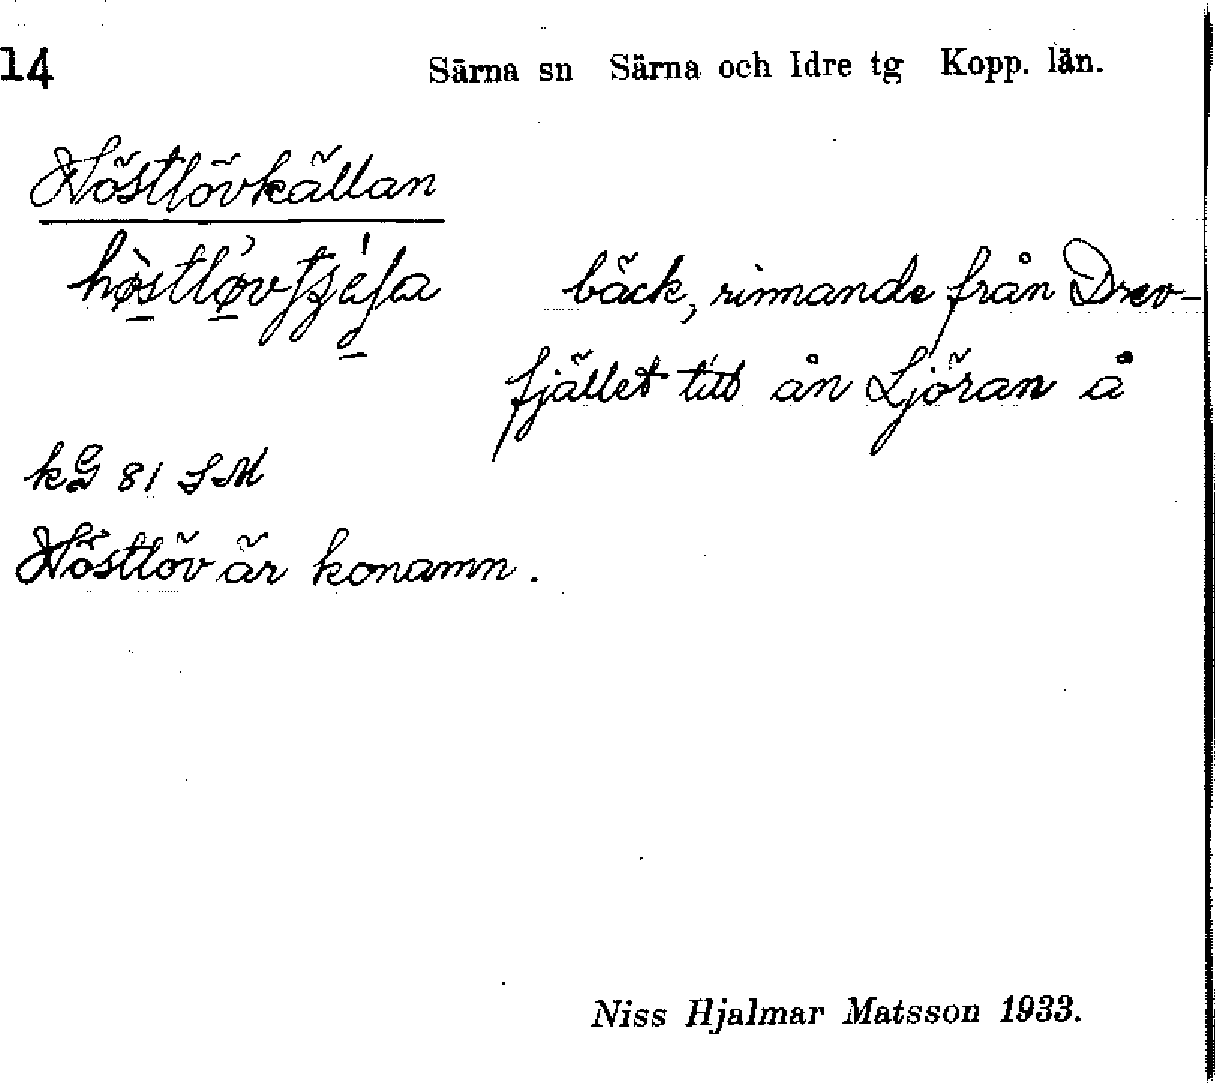 14
Särna sn Särna och Idre tg Kopp. län.
Höstlövkällan
bäck, rinnande från Drev-
fjället till ån Ljöran å
kG 81 SM
Höstlöv är konamn.
Niss Hjalmar Matsson 1933.